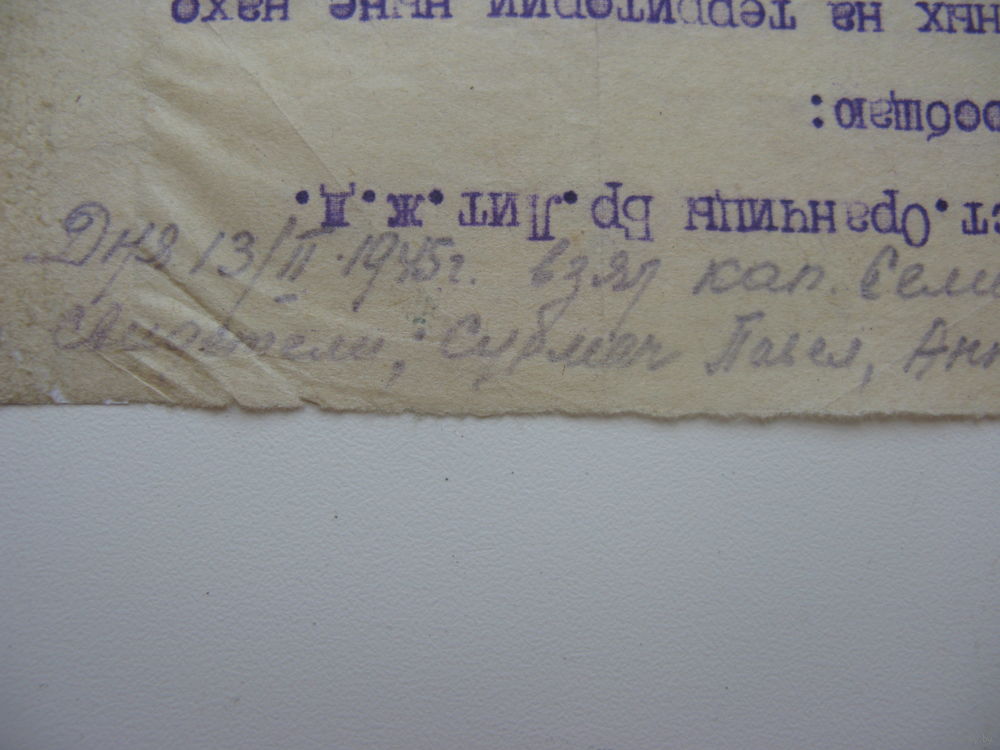 ных на территории ныне нахо
сообщаю:
ст.Оранчицы Бр.Лит.ж.д.
Дня 13/II-1945г. взял кап.
Свидетели; Сурмач Павел,